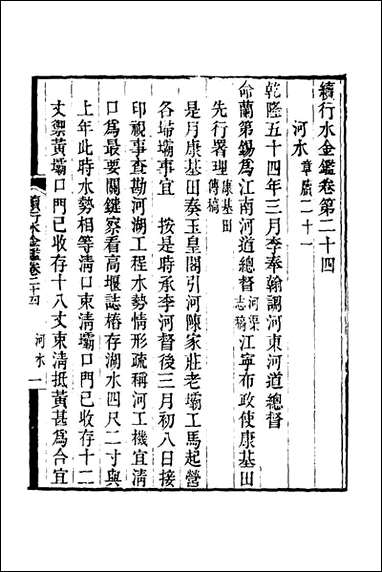 續行水金鑑卷第二十四
河水章牘二十一
乾隆五十四年三月李奉翰調河東河道總督
命蘭第錫爲江南河道總督河渠志稿江寧布政使康基田
先行署理康基田傳稿
是月康基田奏玉皇閣引河陳家莊老壩工馬起營
各埽壩事宜 按是時承李河督後三月初八日接
印視事查勘河湖工程水勢情形疏稱河工機宜清
口爲最要關鍵察看高堰誌樁存湖水四尺二寸與
上年此時水勢相等清口東清壩口門已收存十二
丈禦黃壩口門已收存十八丈束清抵黃甚爲合宜
續行水金鑑卷二十四 河水 一